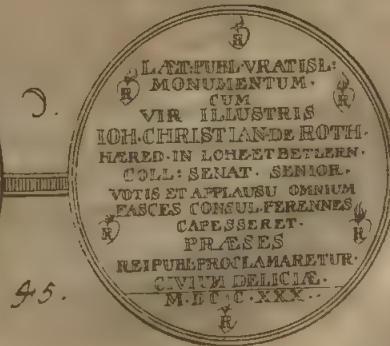 R
LÆT: PUBL. VRATISL:
MONUMENTUM.
CUM
VIR ILLUSTRIS
IOH. CHRISTIAN. DE ROTH.
HÆRED. IN LOHE. ET BETLERN.
COLL: SENAT. SENIOR.
VOTIS ET APPLAUSU OMNIUM
FASCES CONSUL. PERENNES
CAPESSERET.
PRÆSES
REI PUBL. PROCLAMARETUR.
CIVIUM DELICIÆ.
R R
R R
R
45.